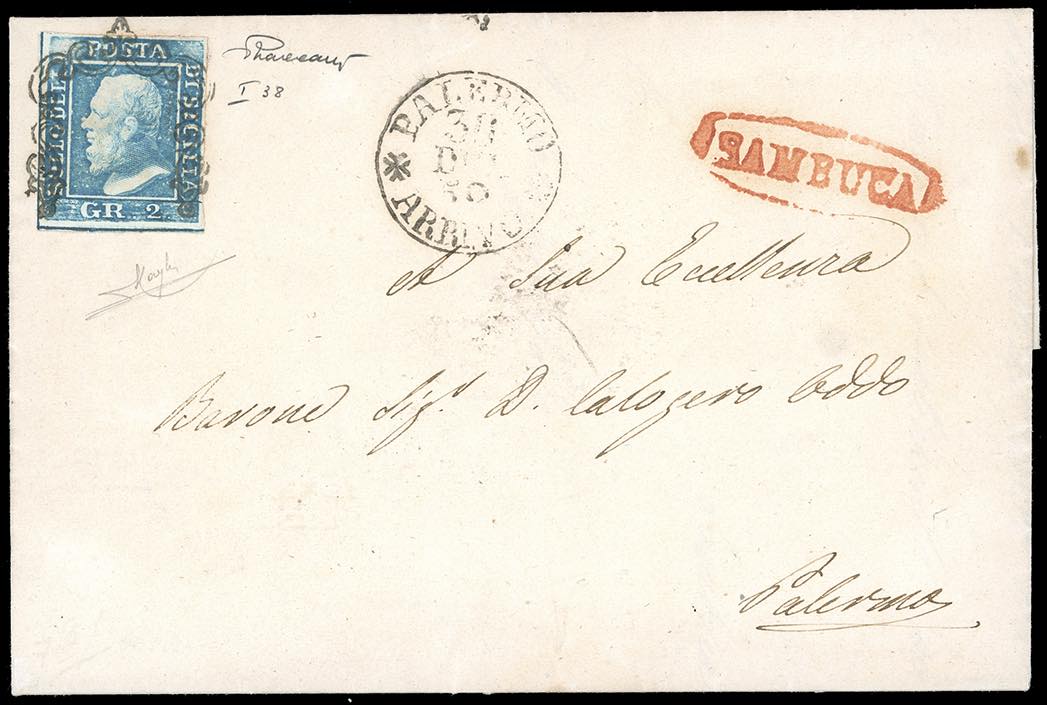 POSTA
BOLLO DELLA
DI SICILIA
GR. 2.
I 38
PALERMO
ARRIVO
SAMBUCA
A Sua Eccellenza
Barone Sigr. D. Calogero Oddo
Palermo